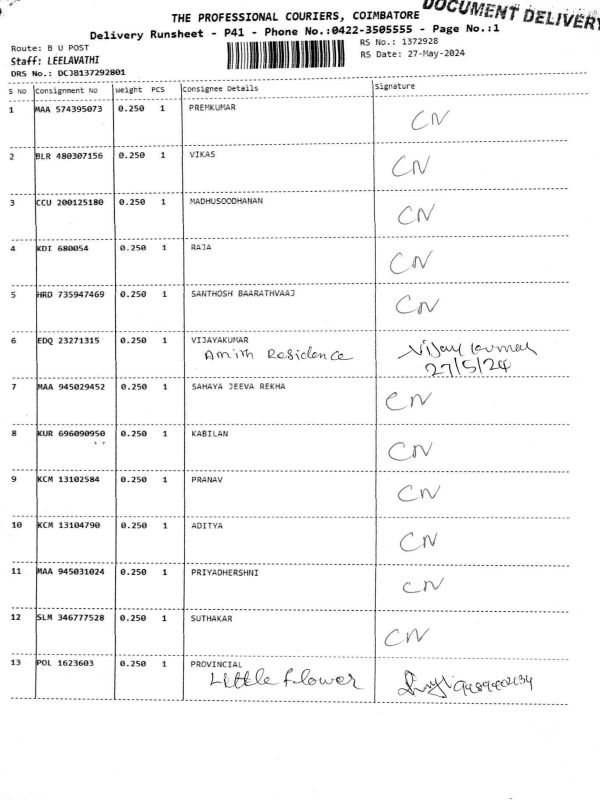 DOCUMENT DELIVERY
THE PROFESSIONAL COURIERS, COIMBATORE
Delivery Runsheet - P41 - Phone No.:0422-3505555 - Page No.:1
Route: B U POST
RS No.: 1372928
Staff: LEELAVATHI
RS Date: 27-May-2024
DRS No.: DCJB137292801
S No Consignment No Weight PCS Consignee Details Signature
1 MAA 574395073 0.250 1 PREMKUMAR CN
2 BLR 480307156 0.250 1 VIKAS CN
3 CCU 200125180 0.250 1 MADHUSOODHANAN CN
4 KDI 680054 0.250 1 RAJA CN
5 HRD 735947469 0.250 1 SANTHOSH BAARATHVAAJ CN
6 EDQ 23271315 0.250 1 VIJAYAKUMAR
Amith Residence Vijay kumar
27/5/24
7 MAA 945029452 0.250 1 SAHAYA JEEVA REKHA CN
8 KUR 696090950 0.250 1 KABILAN CN
9 KCM 13102584 0.250 1 PRANAV CN
10 KCM 13104790 0.250 1 ADITYA CN
11 MAA 945031024 0.250 1 PRIYADHERSHNI CN
12 SLM 346777528 0.250 1 SUTHAKAR CN
13 POL 1623603 0.250 1 PROVINCIAL
Little flower